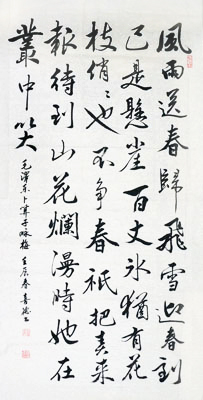 風雨送春歸飛雪迎春到
已是懸崖百丈冰猶有花
枝俏〻也不争春祇把春來
報待到山花爛漫時她在
叢中笑
毛澤東卜算子咏梅 壬辰春喜德书